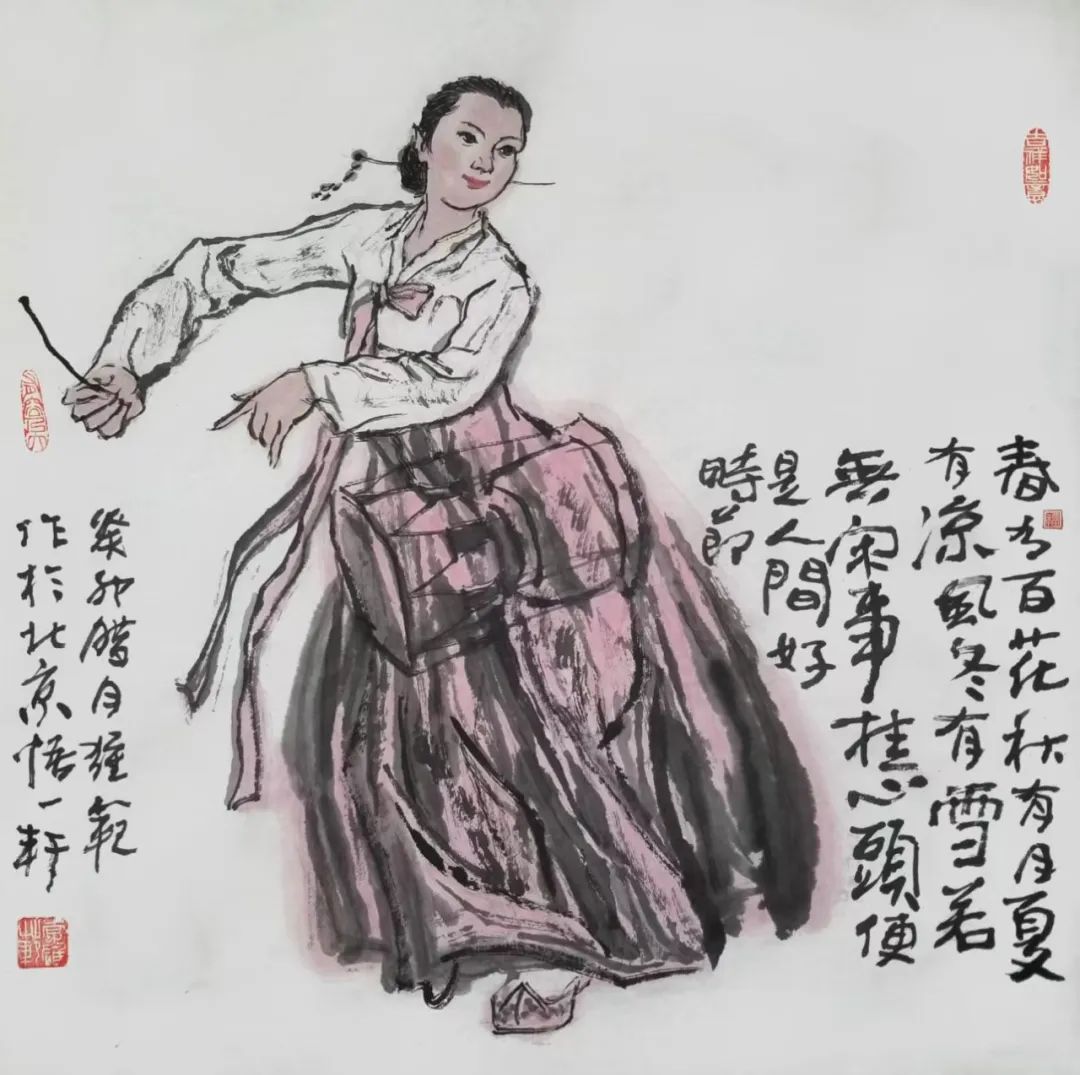 春有百花秋有月夏
有凉風冬有雪若
無闲事挂心頭便
是人間好
時節
癸卯腊月
作於北京悟一軒
吉祥如意